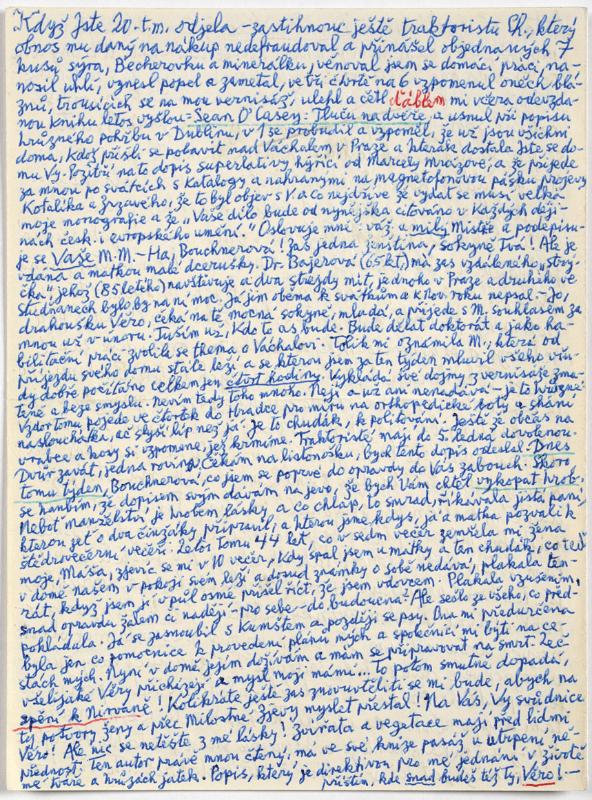 Když Jste 20.t.m. odjela - zastihnouc ještě traktoristu Ch., který
obnos mu daný na nákup nedefraudoval a přinášel objednaných 7
kusů sýra, Becherovku a minerálku, věnoval jsem se domácí práci, na-
nosil uhlí, vznesl popel a zametal, ve tři čtvrtě na 6 vzpomenul oněch blá-
znů, trousících se na mou vernisáž, ulehl a četl ďáblem mi včera odevzda-
nou knihu letos vyšlou = Sean O'Casey: Tluču na dveře a usnul při popisu
hrůzného pohřbu v Dublinu, v 1 se probudil a vzpoměl, že už jsou všichni
doma, kdož přišli se pobavit nad Váchalem v Praze a kterak dostala Jste se do-
mu Vy. Pozítří na to dopis superlativy hýřící od Marcely Mrázové, a že přijede
za mnou po svátcích s katalogy a nahranými na magnetofonovou pásku projevy
Kotalíka a Zrzavého, že to byl objev s V. a co nejdříve že vydat se musí velká
moje monografie a že „Vaše dílo bude od nynějška citováno v každých ději-
nách česk. i evropského umění." Oslovuje mne: váž. a milý Mistře a podepisu-
je se Vaše M.M. - Ha, Bouchnerová! Zas jedna ženština, sokyně Tvá! Ale je
vdaná a matkou malé dcerušky. Dr. Bajerová (65 let,) má zas vzdáleného „strý-
čka", jehož (85 letého) navštěvuje a dva strejdy mít, jednoho v Praze a druhého ve
Studňanech bylo by na ní moc. Já jim oběma k svátkům a k Nov. roku nepsal. - Jo,
drahoušku Věro, čeká na tě mocná sokyně, mladá, a přijede s M. souhlasem za
mnou už v únoru. Tuším už, kdo to as bude. Bude dělat doktorát a jako ha-
bilitační práci zvolila se thema o Váchalovi. Tolik mi oznámila M., která od
příjezdu svého domu stále leží a se kterou jsem za ten týden mluvil všeho všu-
dy dobře počítáno celkem jen čtvrt hodiny. Vykládá své dojmy z vernisáže zma-
teně a beze smyslu. Nevím tedy toho mnoho. Nejí a už ani nenadává - je to hrůzné
Vzdor tomu pojede ve čtvrtek do Hradce pro míru na orthopedické boty a shání
naslouchátka, ač slyší líp než já. Je to chudák, k politování. Ještě že občas na
vrabce a kosy si vzpomene, jež krmíme. Traktoristé mají do 5. ledna dovolenou.
Dvůr zavát, jedna rovina. Čekám na listonošku, bych tento dopis odeslal. Dnes
tomu týden, Bouchnerová, co jsem se poprvé do opravdy do Vás zabouch. Skoro
se hanbím, že dopisem svým dávám na jevo, že bych Vám chtěl vykopat hrob.
Neboť manželství je hrobem lásky, a co chlap, to smrad, říkávala jistá paní
kterou zeť o dva činžáky připravil, a kterou jsme kdys, já a matka pozvali k
štědrovečerní večeři. Letos tomu 44 let, co v sedm večer zemřela mi žena
moje, Máša, zjevíc se mi v 10 večer, kdy spal jsem u mátky a ten chudák, co teď
v domě našem v pokoji svém leží a dosud známky o sobě nedává, plakala ten-
krát, když jsem ji v půl osmé přišel říct, že jsem vdovcem. Plakala vzušením,
snad opravdu žalem či nadějí - pro sebe - do budoucna? Ale sešlo ze všeho, co před-
pokládala. Já se zasnoubil s Kumštem a později se psy. Ona mi předurčena
byla jen co pomocnice k provedení plánů mých a společnicí mi býti na ce-
stách mých. Nyní v domě jejím dožívám a mám se připravovat na smrt. Leč
všelijaké Věry přicházejí, a mysl moji mámí... To potom smutně dopadá,
to! Kolikráte ještě zas znovuvtěliti se mi bude, abych na
zpěni k Nirváně! potvory ženy a přec Milostné Zjevy myslet přestal! Na Vás, Vy svůdnice
Věro! Ale nic se netěšte z mé lásky! Zvířata a vegetace mají před lidmi
přednost. Ten autor právě mnou čtený, má ve své knize pasáž o utrpení ně-
mé tváře a hrůzách jatek. Popis, který je direktivou pro mé jednání v životě
příštím, kde snad budeš též ty, Věro! -